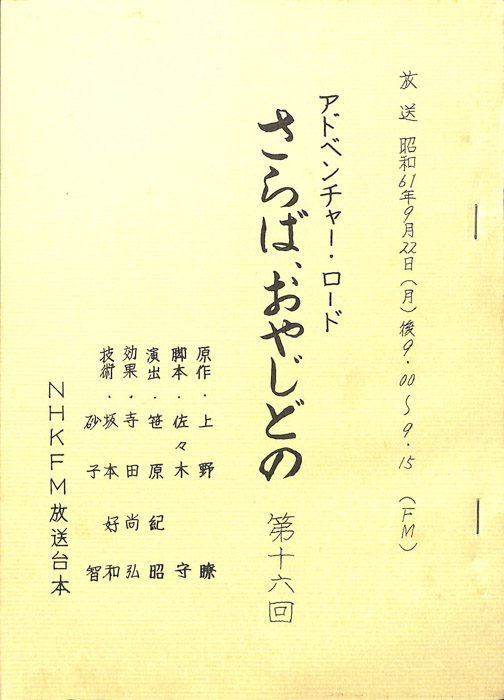 放送 昭和61年9月22日(月)後9.00〜9.15 (FM)
アドベンチャー・ロード
さらば、おやじどの 第十六回
原作・上野 瞭
脚本・佐々木 守
演出・笹原紀昭
効果・寺田尚弘
技術・坂本好和
砂子 智
NHKFM放送台本